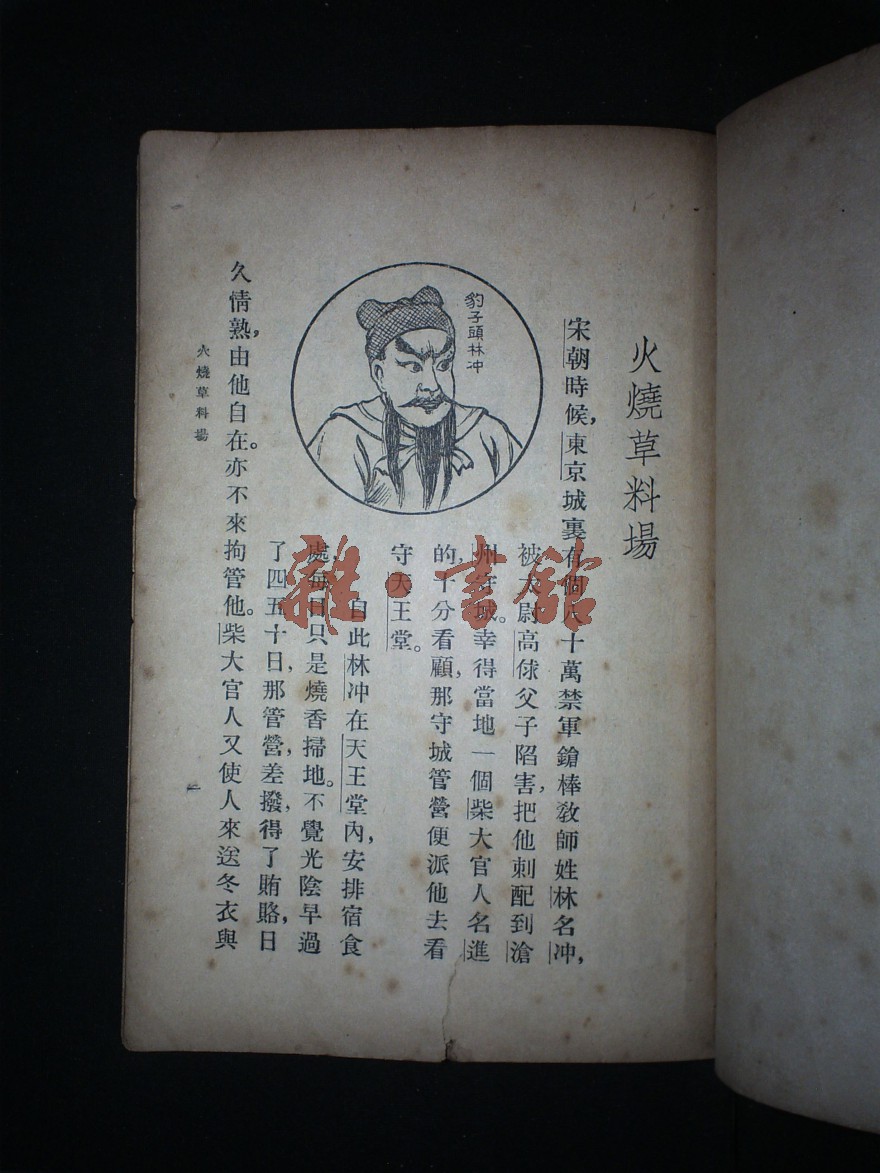 火燒草料場
宋朝時候，東京城裏有個八十萬禁軍鎗棒教師姓林名冲，
被太尉高俅父子陷害，把他刺配到滄
州守城。幸得當地一個柴大官人名進
的，十分看顧，那守城管營便派他去看
守天王堂。
豹子頭林冲
自此林冲在天王堂內，安排宿食
處，每日只是燒香掃地。不覺光陰早過
了四五十日，那管營，差撥，得了賄賂，日
久情熟，由他自在。亦不來拘管他。柴大官人又使人來送冬衣與
火燒草料場
雜·書館